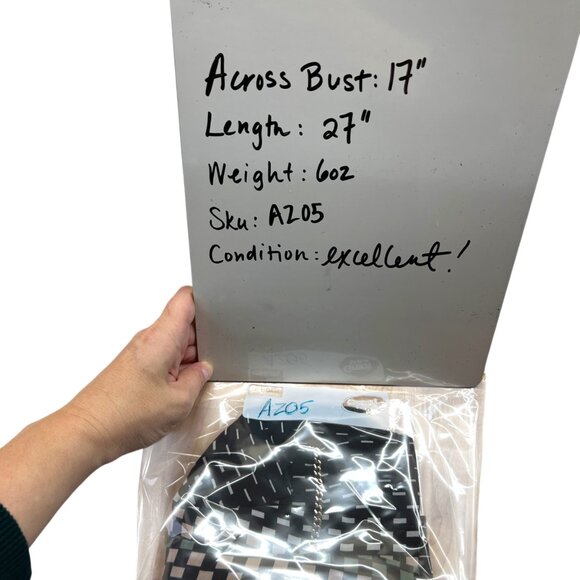 Across Bust: 17"
Length: 27"
Weight: 6oz
Sku: AZ05
Condition: excellent!
AZ05